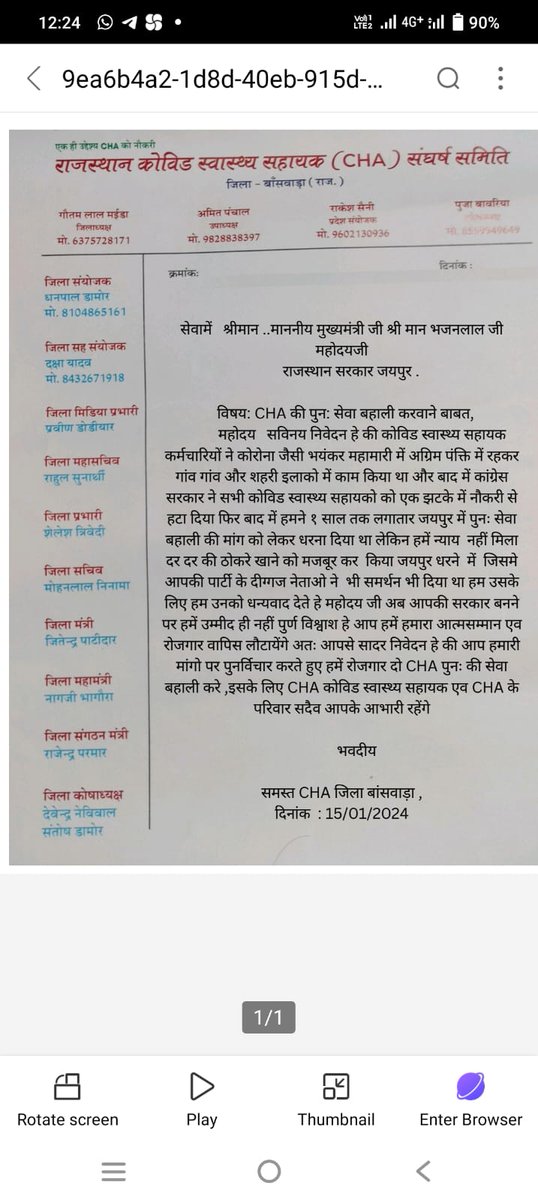 12:24
4G+
90%
9ea6b4a2-1d8d-40eb-915d-...
एक ही उद्देश्य CHA को नौकरी
राजस्थान कोविड स्वास्थ्य सहायक (CHA) संघर्ष समिति
जिला - बाँसवाड़ा ( राज. )
गौतम लाल मईडा
जिलाध्यक्ष
मो. 6375728171
अमित पंचाल
उपाध्यक्ष
मो. 9828838397
राकेश सैनी
प्रदेश संयोजक
मो. 9602130936
पुजा बावरिया
मो. 8559949649
क्रमांक:
दिनांक :
जिला संयोजक
धनपाल डामोर
मो. 8104865161
जिला सह संयोजक
दक्षा यादव
मो. 8432671918
जिला मिडिया प्रभारी
प्रवीण डोडीयार
जिला महासचिव
राहुल सुनार्थी
जिला प्रभारी
शेलेश त्रिवेदी
जिला सचिव
मोहनलाल निनामा
जिला मंत्री
जितेन्द्र पाटीदार
जिला महामंत्री
नागजी भागौरा
जिला संगठन मंत्री
राजेन्द्र परमार
जिला कोषाध्यक्ष
देवेन्द्र नेविवाल
संतोष डामोर
सेवामें श्रीमान ..माननीय मुख्यमंत्री जी श्री मान भजनलाल जी
महोदयजी
राजस्थान सरकार जयपुर .
विषय: CHA की पुन: सेवा बहाली करवाने बाबत,
महोदय सविनय निवेदन हे की कोविड स्वास्थ्य सहायक
कर्मचारियों ने कोरोना जैसी भयंकर महामारी में अग्रिम पंक्ति में रहकर
गांव गांव और शहरी इलाको में काम किया था और बाद में कांग्रेस
सरकार ने सभी कोविड स्वास्थ्य सहायको को एक झटके में नौकरी से
हटा दिया फिर बाद में हमने १ साल तक लगातार जयपुर में पुनः सेवा
बहाली की मांग को लेकर धरना दिया था लेकिन हमें न्याय नहीं मिला
दर दर की ठोकरे खाने को मजबूर कर किया जयपुर धरने में जिसमे
आपकी पार्टी के दीग्गज नेताओ ने भी समर्थन भी दिया था हम उसके
लिए हम उनको धन्यवाद देते हे महोदय जी अब आपकी सरकार बनने
पर हमें उम्मीद ही नहीं पुर्ण विश्वाश हे आप हमें हमारा आत्मसम्मान एव
रोजगार वापिस लौटायेंगे अतः आपसे सादर निवेदन हे की आप हमारी
मांगो पर पुनर्विचार करते हुए हमें रोजगार दो CHA पुनः की सेवा
बहाली करे ,इसके लिए CHA कोविड स्वास्थ्य सहायक एव CHA के
परिवार सदैव आपके आभारी रहेंगे
भवदीय
समस्त CHA जिला बांसवाड़ा ,
दिनांक : 15/01/2024
1/1
Rotate screen
Play
Thumbnail
Enter Browser